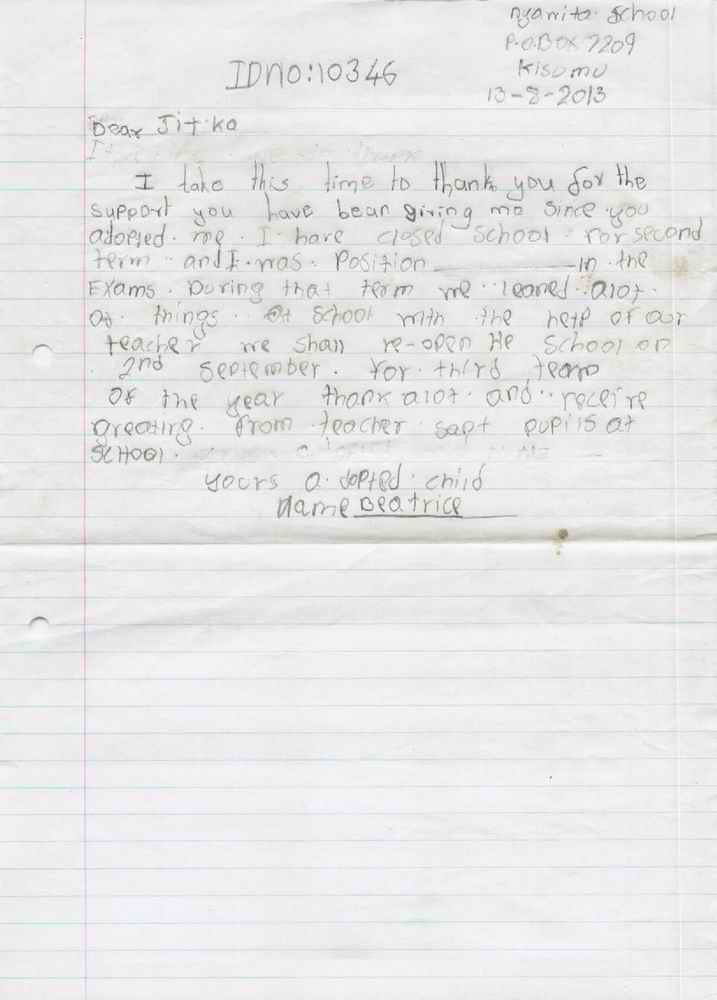 Nyawita School
P.O.BOX 7209
Kisumu
13-8-2013
IDNO:10346
Dear Jitka
I take this time to thank you for the
support you have bean giving me since you
adopted me. I have closed school for second
term and I was Position __________ in the
Exams. During that term we leaned alot
of things at school with the help of our
teacher we shall re-open the school on
2nd September. for third team
of the year thank alot and receive
greating from teacher sapt pupils at
SCHOOL.
yours adopted child
Name Beatrice